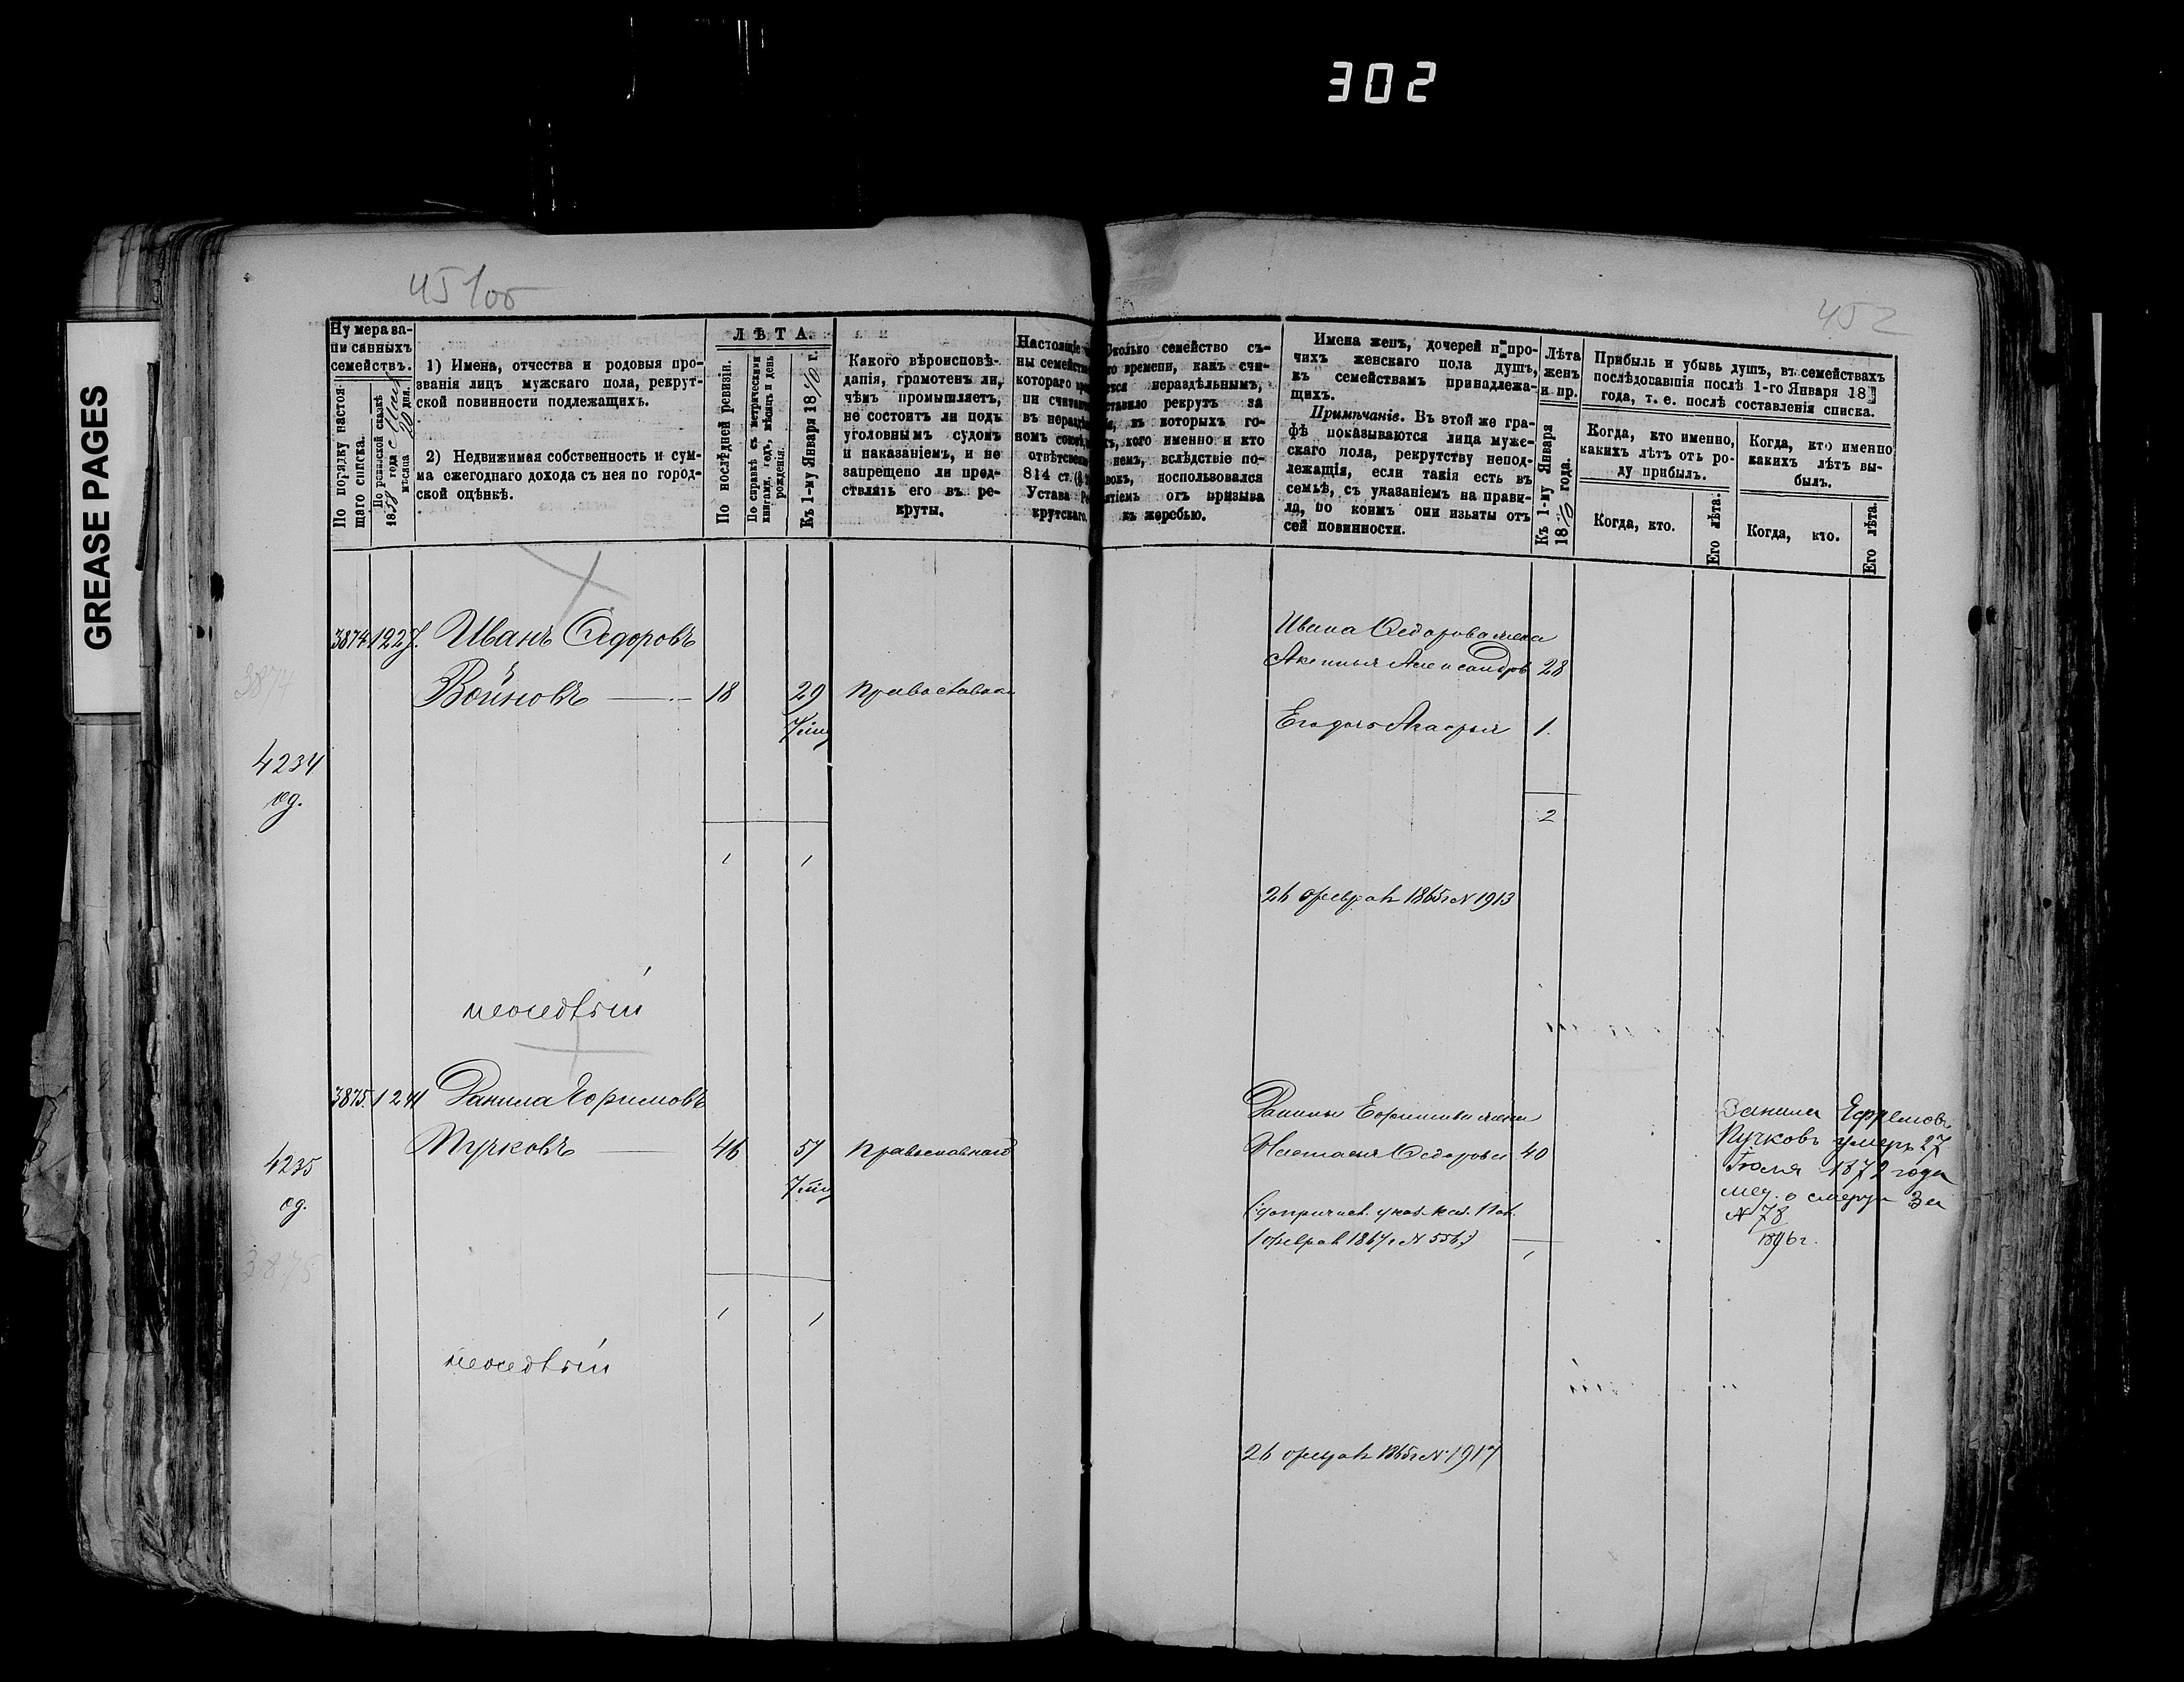 302
GREASE PAGES
451об
452
Нумера за-
писанныхъ
семействъ.
По порядку настоя-
щаго списка.
По ревизской сказкѣ
1858 года
мѣсяца 20 дня.
1) Имена, отчества и родовыя про-
званія лицъ мужскаго пола, рекрут-
ской повинности подлежащихъ.
2) Недвижимая собственность и сум-
ма ежегоднаго дохода съ нея по город-
ской оцѣнкѣ.
ЛѢТА.
По послѣдней ревизіи.
По справкѣ съ метрическими
книгами, годъ, мѣсяцъ и день
рожденія.
Къ 1-му Января 1870 г.
Какого вѣроисповѣ-
данія, грамотенъ ли,
чѣмъ промышляетъ,
не состоитъ ли подъ
уголовнымъ судомъ
и наказаніемъ, и не
запрещено ли пред-
ставлять его въ ре-
круты.
Настоящіе
ны семейства
котораго
пи считают
въ нераздѣ
номъ
отвѣтствен
814 ст.
Устава Ре-
крутскаго.
Сколько семейство съ-
го времени, какъ счи-
тается нераздѣльнымъ,
ставило рекрутъ за
въ которыхъ го-
кого именно и кто
немъ, вслѣдствіе по-
воспользовался
изъятіемъ отъ призыва
къ жеребью.
Имена женъ, дочерей и про-
чихъ женскаго пола душъ,
къ семействамъ принадлежа-
щихъ.
Примѣчаніе. Въ этой же гра-
фѣ показываются лица муже-
скаго пола, рекрутству непод-
лежащія, если такія есть въ
семьѣ, съ указаніемъ на прави-
ла, по коимъ они изъяты отъ
сей повинности.
Лѣта
женъ
и пр.
Къ 1-му Января
1870 года.
Прибыль и убыль душъ, въ семействахъ
послѣдовавшія послѣ 1-го Января 18
года, т. е. послѣ составленія списка.
Когда, кто именно,
какихъ лѣтъ отъ ро-
ду прибылъ.
Когда, кто именно
какихъ лѣтъ вы-
былъ.
Когда, кто.
Его лѣта.
Когда, кто.
Его лѣта.
3874 1227. Иванъ Ѳедоровъ
Войновъ 18 29 православнаго
3874
4234
ед.
1 1
Ивана Ѳедорова жена
Аксинья Александров 28
Его дочь Марья 1.
2
26 феврал 1865 г № 1913
неосѣдлый
3875. 1241 Данила Ефимовъ
Пучковъ 46 57 православнаго
4235
ед.
3875
1 1
неосѣдлый
Данилы Ефимова жена
Настасья Ѳедорова 40
1 феврал 1867 г № 556)
1
26 феврал 1865 г № 1917
Данила Ефремовъ
Пучковъ умеръ 27
Іюля 1872 года
мед. о смерти за
№ 78
1876 г.